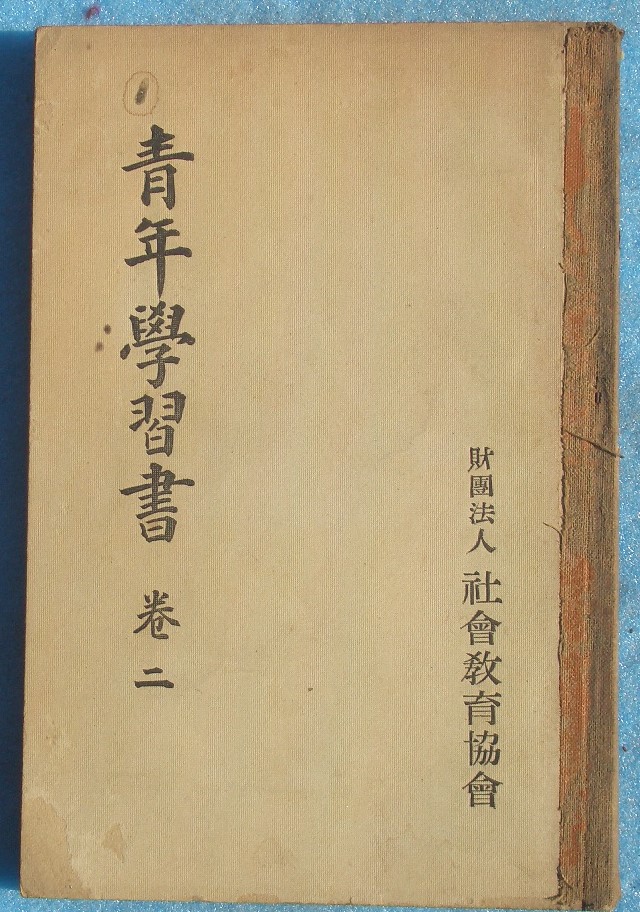 財團法人 社會敎育協會
青年學習書 卷二